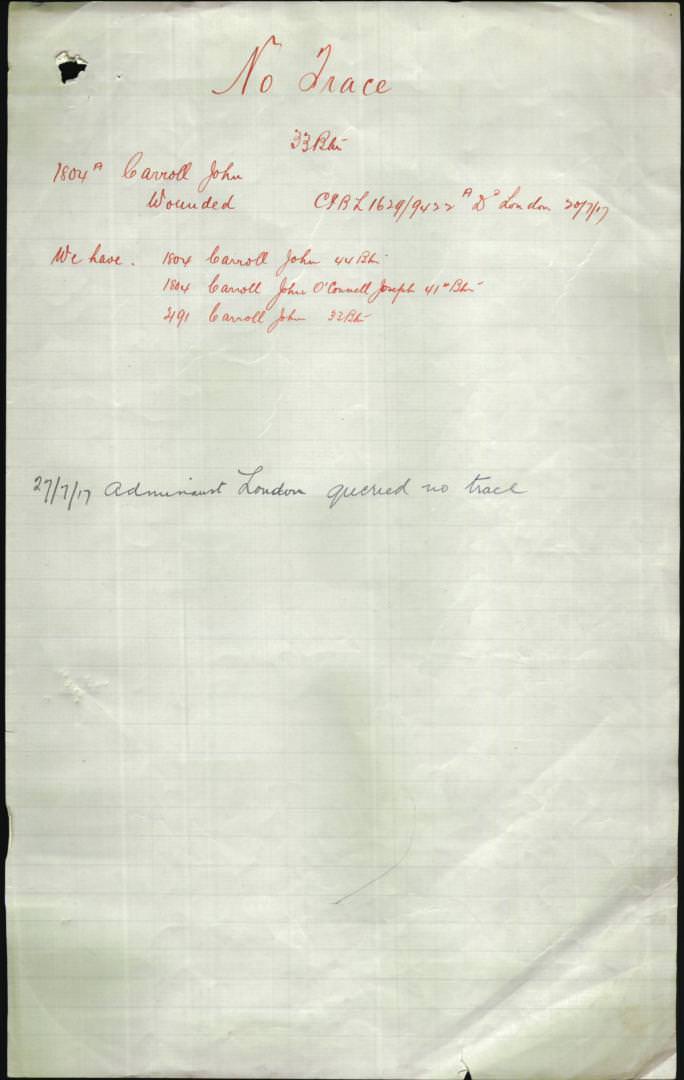 No Trace
33 Btn
1804 A Carroll John
Wounded CPBL 1629/9422 A Dd London 20/7/17
We have. 1804 Carroll John 44 Btn
1804 Carroll John O'Connell Joseph 41st Btn
2191 Carroll John 32 Btn
27/7/17 Adminaust London queried no trace